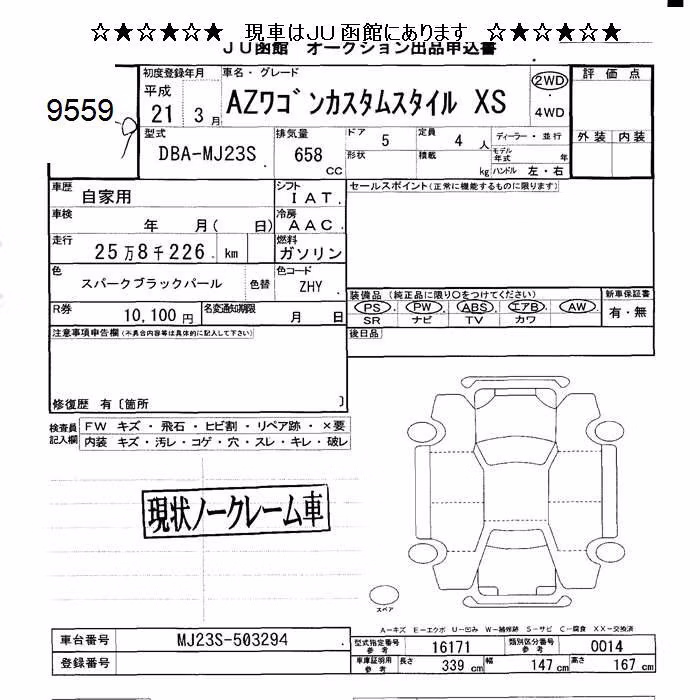 ☆★☆★☆★ 現車はJU函館にあります ☆★☆★☆★
JU函館 オークション出品申込書
9559
初度登録年月 車名・グレード 評価点
平成 21 3月 AZワゴンカスタムスタイル XS 2WD ・ 4WD
外装 内装
型式 DBA-MJ23S 排気量 658 cc ドア 5 定員 4 人 ディーラー・並行
形状 積載 kg モデル年式 年
ハンドル 左・右
車歴 自家用 シフト IAT. セールスポイント(正常に機能するものに限ります)
車検 年 月( 日) 冷房 AAC.
走行 25万8千226. km 燃料 ガソリン
色 スパークブラックパール 色替 色コード ZHY
装備品 (純正品に限り○をつけてください) 新車保証書
R券 10,100円 名変通知期限 月 日
PS. PW. ABS. エアB. AW. 有・無
SR ナビ TV カワ
注意事項申告欄(不具合内容等は具体的に記入して下さい) 後日品
修復歴 有〔箇所 〕
検査員記入欄 FW キズ・飛石・ヒビ割・リペア跡・×要
内装 キズ・汚レ・コゲ・穴・スレ・キレ・破レ
現状ノークレーム車
スペア
A-キズ E-エクボ U-凹み W-補修跡 S-サビ C-腐食 XX-交換済
車台番号 MJ23S-503294 型式指定番号 参考 16171 類別区分番号 参考 0014
登録番号 車庫証明用 参考 長さ 339 cm 幅 147 cm 高さ 167 cm